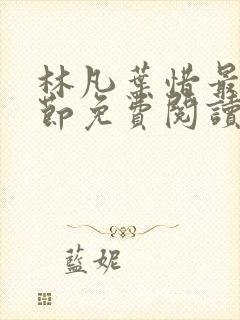 林凡葉惜最
節免費閱讀
藍妮